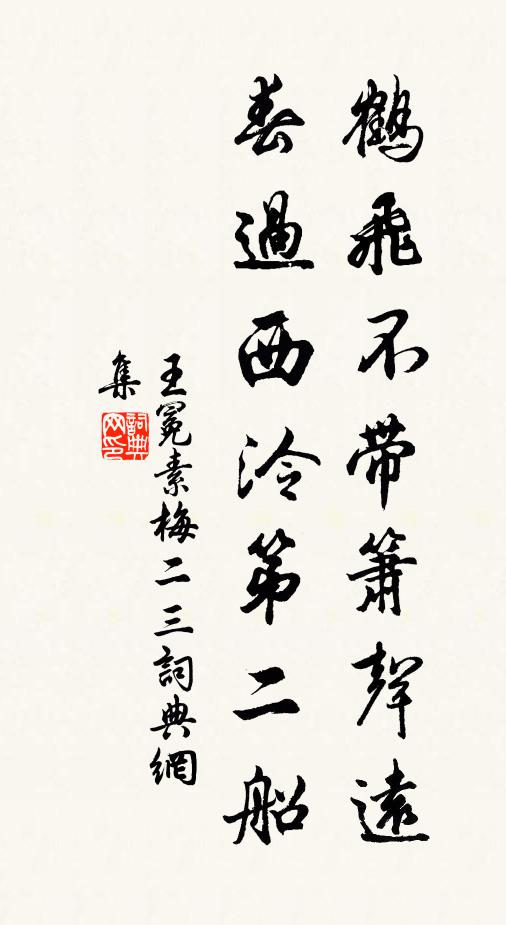 鶴飛不帶簫聲遠
春過西泠第二船
王冕素梅二三詞典網
集
詞典
网印